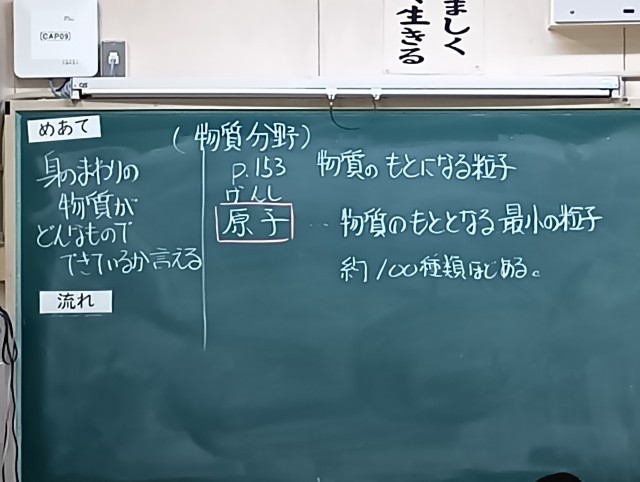 CAP09
ましく
生きる
めあて
身のまわりの
物質が
どんなもので
できているか言える
流れ
(物質分野)
p.153 物質のもとになる粒子
げんし
原子 … 物質のもととなる最小の粒子
約100種類